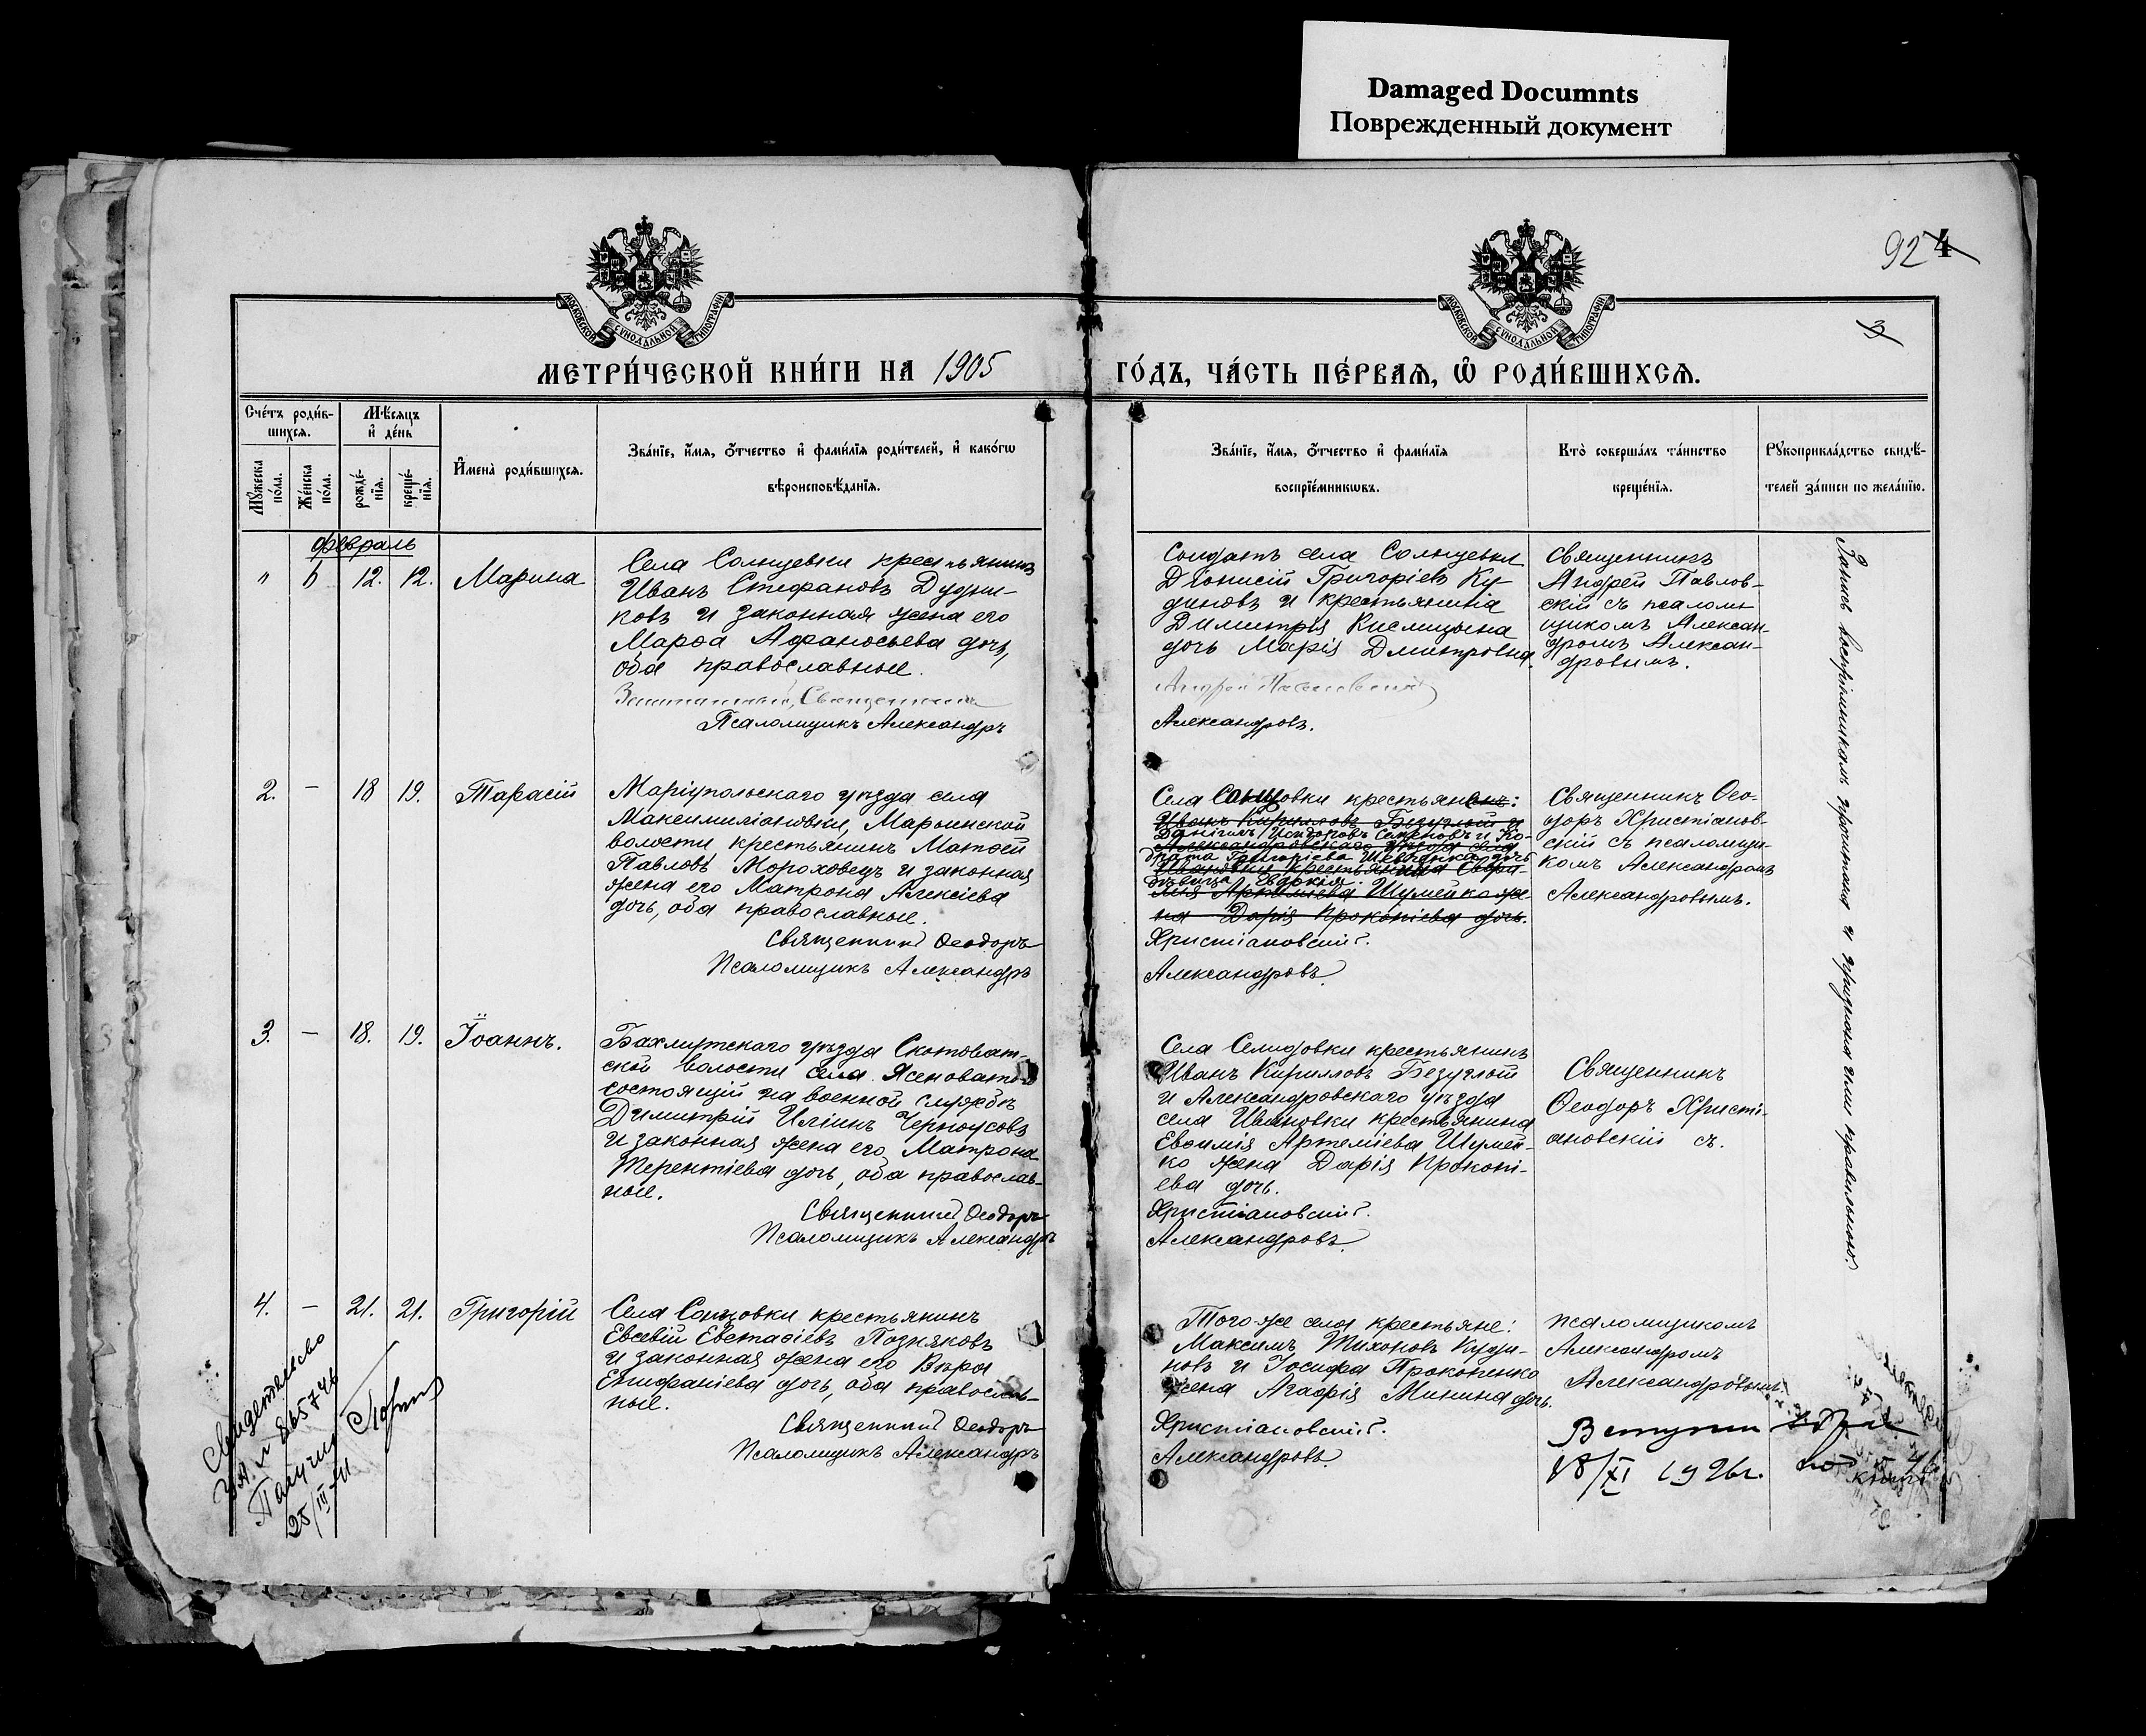 Damaged Documnts
Поврежденный документ
92 4
3
МОСКОВСКОЙ СѴНОДАЛЬНОЙ ТИПОГРАФІИ
МОСКОВСКОЙ СѴНОДАЛЬНОЙ ТИПОГРАФІИ
МЕТРИ́ЧЕСКОЙ КНИ́ГИ НА 1905
ГО́ДЪ, ЧА́СТЬ ПЕ́РВАѦ, Ѽ РОДИ́ВШИХСѦ.
Сче́тъ роди́в-
шихсѧ.
Мꙋжеска по́ла.
Же́нска по́ла.
Мѣ́сѧцъ
и҆ де́нь
рожде́-
нїѧ.
креще́-
нїѧ.
И҆мена̀ роди́вшихсѧ.
Зва́нїе, и҆́мѧ, ѻ҆́тчество и҆ фами́лїѧ роди́телей, и҆ како́гѡ
вѣроисповѣ́данїѧ.
Зва́нїе, и҆́мѧ, ѻ҆́тчество и҆ фами́лїѧ
воспрїе́мникѡвъ.
Кто̀ соверша́лъ та́инство
креще́нїѧ.
Рꙋкоприкла́дство свидѣ́-
телей за́писи по жела́нїю.
Февраль
" 6 12. 12. Марина
Села Солнцевки крестьянинъ
Иванъ Стефановъ Дудни-
ковъ и законная жена его
Марѳа Аѳанасьева дочь,
оба православные.
Священникъ
Псаломщикъ Александръ
Солдатъ села Солнцевки
Діонисій Григоріевъ Ку-
диновъ и крестьянина
Димитрія Кислицына
дочь Марія Дмитровна.
Андрей Павловскій
Александровъ.
Священникъ
Андрей Павлов-
скій съ псалом-
щикомъ Алексан-
дромъ Алексан-
дровымъ.
2. — 18 19. Тарасій
Маріупольскаго уѣзда села
Максимиліановки, Марьинской
волости крестьянинъ Матѳей
Павловъ Мороховецъ и законная
жена его Матрона Алексіева
дочь, оба православные.
Священникъ Ѳеодоръ
Псаломщикъ Александръ
Села Солнцовки крестьяне:
Иванъ Кирилловъ Безуглый и
Даніилъ Исидоровъ и Ко-
Александровскаго уѣзда села
драта Григоріева Шевченка дочь
Ивановки крестьянина Евѳи-
дѣвица Евдокія.
мія Артеміева Шумейко же-
на Дарія Прокопіева дочь.
Христіановскій.
Александровъ.
Священникъ Ѳео-
доръ Христіанов-
скій съ псаломщи-
комъ Александромъ
Александровымъ.
3. — 18. 19. Іоаннъ.
Бахмутскаго уѣзда Скотоват-
ской волости села Ясеноватой
состоящій на военной службѣ
Димитрій Иліинъ Черноусовъ
и законная жена его Матрона
Терентіева дочь, оба православ-
ные.
Священникъ Ѳеодоръ
Псаломщикъ Александръ
Села Селидовки крестьянинъ
Иванъ Кирилловъ Безуглый
и Александровскаго уѣзда
села Ивановки крестьянина
Евѳимія Артеміева Шумей-
ко жена Дарія Прокопі-
ева дочь.
Христіановскій.
Александровъ.
Священникъ
Ѳеодоръ Христі-
ановскій съ
4. — 21. 21. Григорій
Села Солнцовки крестьянинъ
Евсевій Евстафіевъ Поздняковъ
и законная жена его Вѣра
Епифаніева дочь, оба православ-
ные.
Священникъ Ѳеодоръ
Псаломщикъ Александръ
Того же села крестьяне:
Максимъ Тихоновъ Куди-
новъ и Іосифа Прокопенко
жена Агафія Минина дочь.
Христіановскій.
Александровъ.
псаломщикомъ
Александромъ
Александровымъ.
Запись воспріемникамъ прочитана и признана ими правильною.
Свидетельство
Получил
25/III-41
18/XI 1926г.